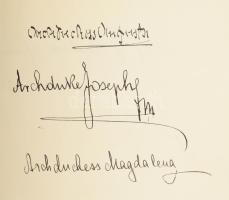 Archduchess Augusta
Archduke Joseph
fm
Archduchess Magdalena